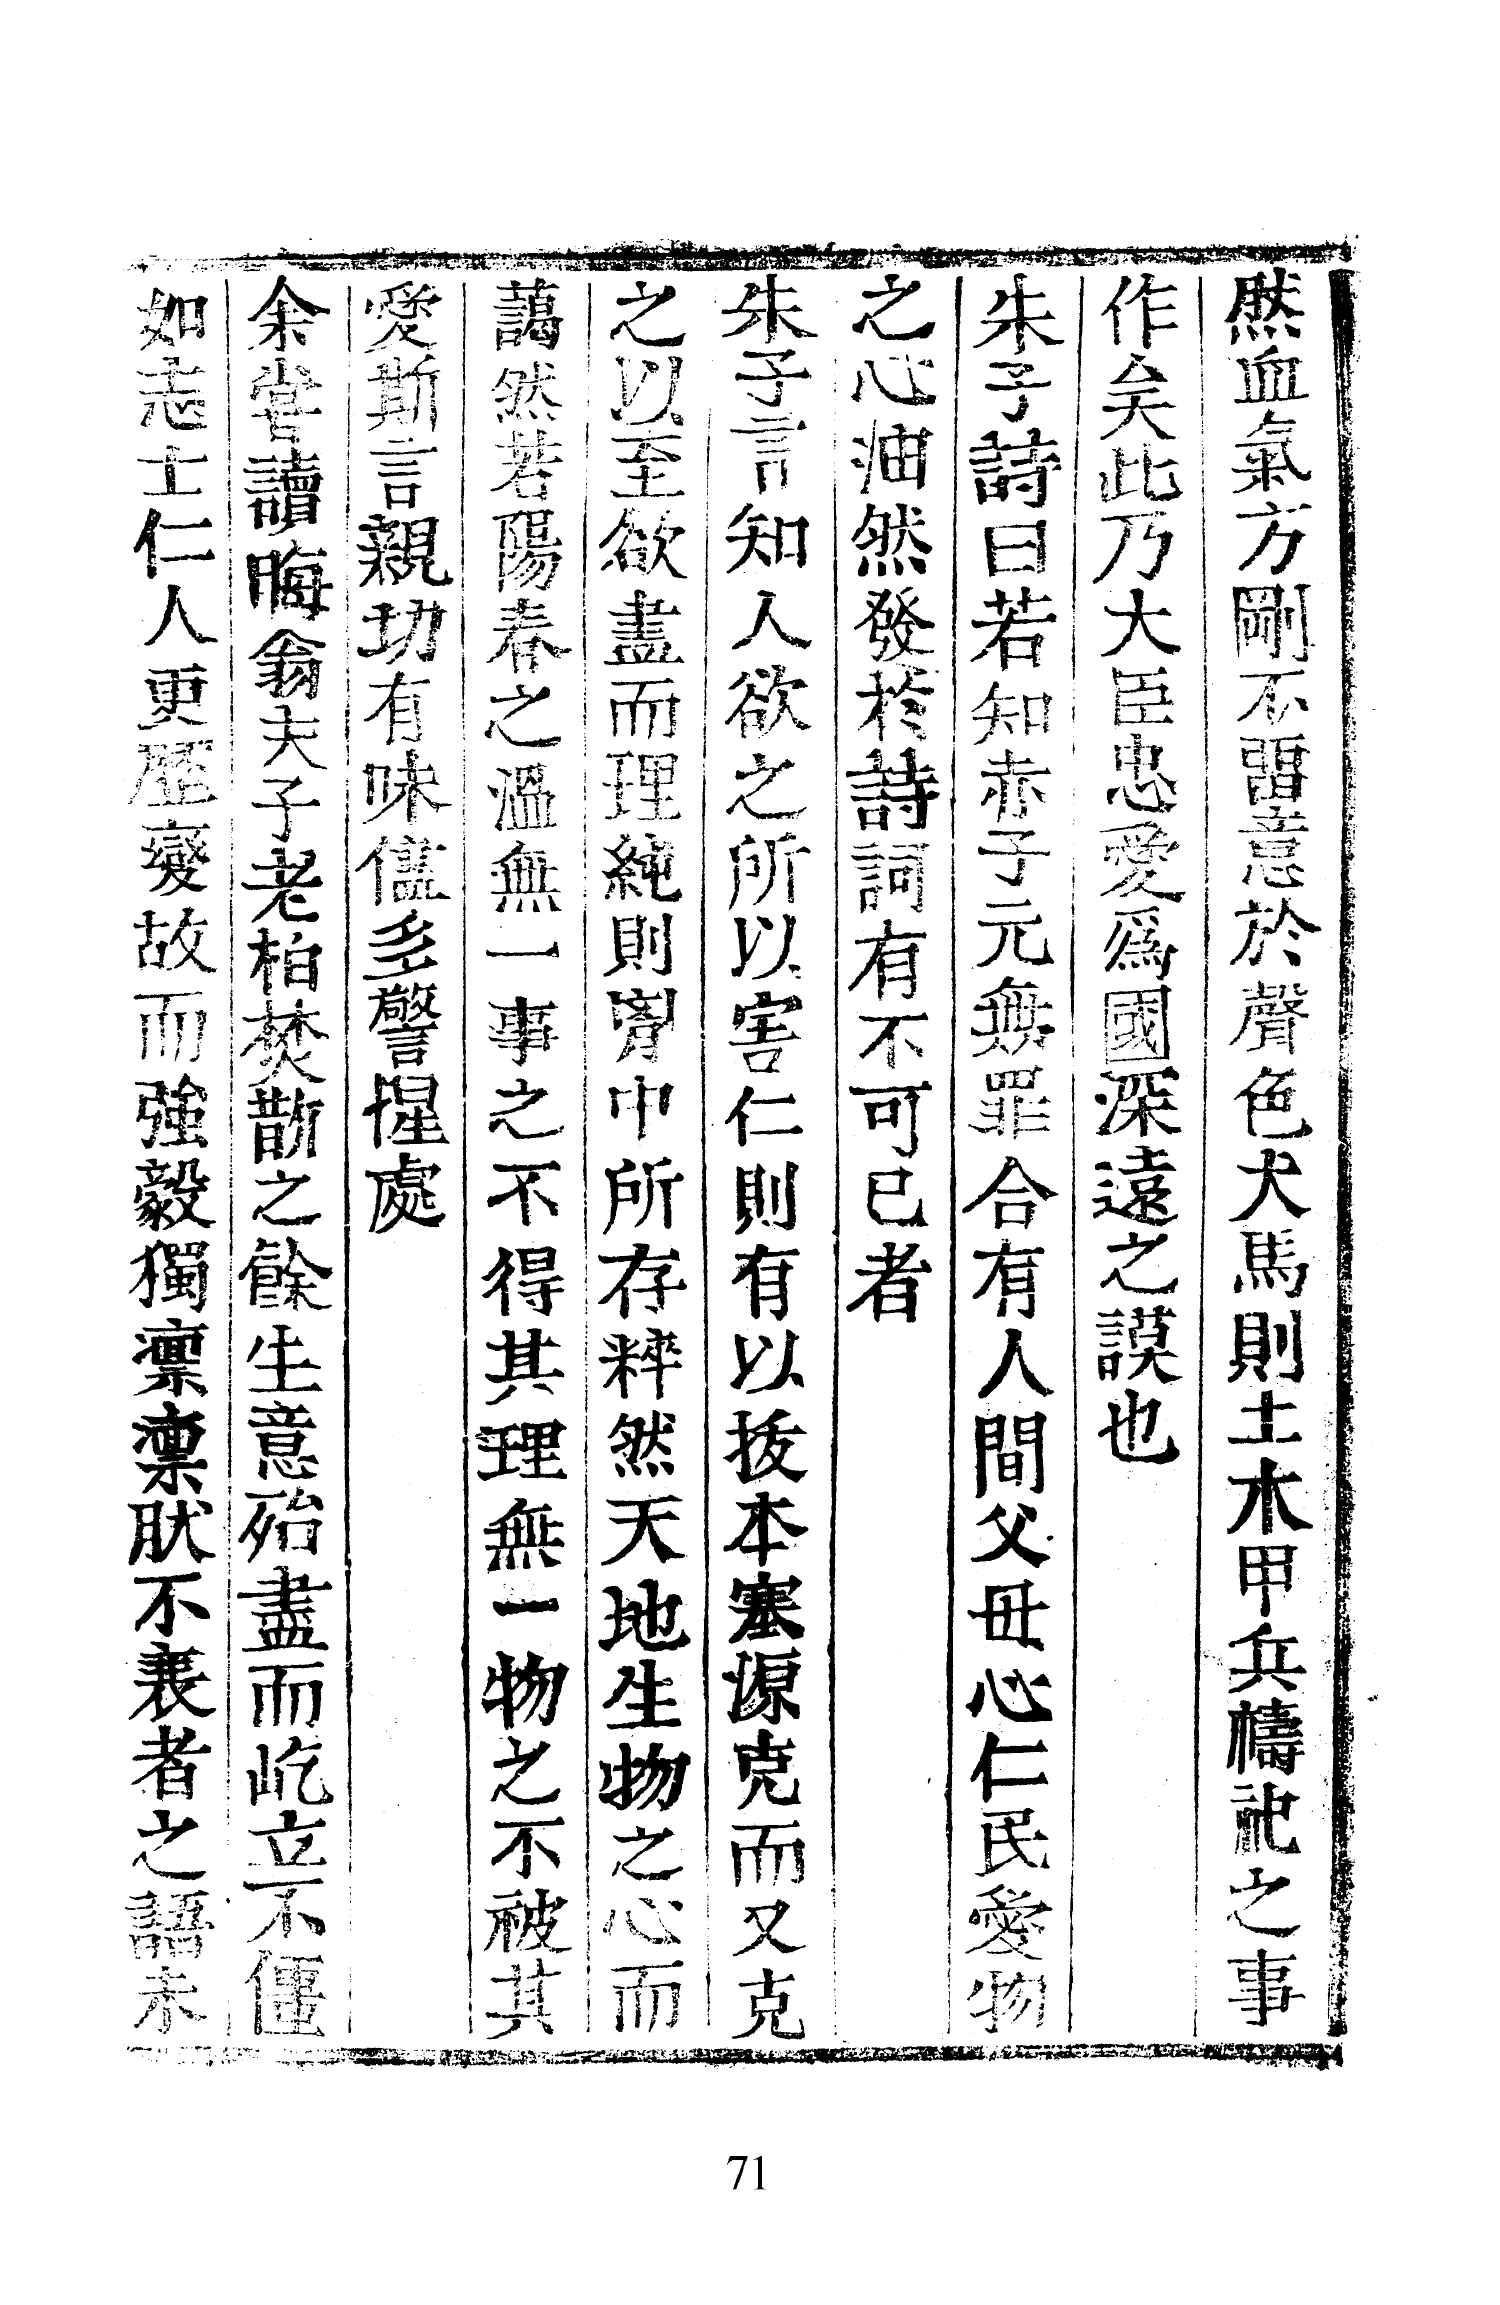 然血氣方剛不畱意於聲色犬馬則土木甲兵禱祀之事
作矣此乃大臣忠愛爲國深遠之謨也
朱子詩曰若知赤子元無罪合有人間父母心仁民愛物
之心油然發於詩詞有不可已者
朱子言知人欲之所以害仁則有以拔本塞源克而又克
之以至欲盡而理純則胷中所存粹然天地生物之心而
藹然若陽春之溫無一事之不得其理無一物之不被其
愛斯言親切有味儘多警惺處
余嘗讀晦翁夫子老柏焚斮之餘生意殆盡而屹立不僵
如志士仁人更歷變故而強毅獨凛凛肰不衰者之語未
71